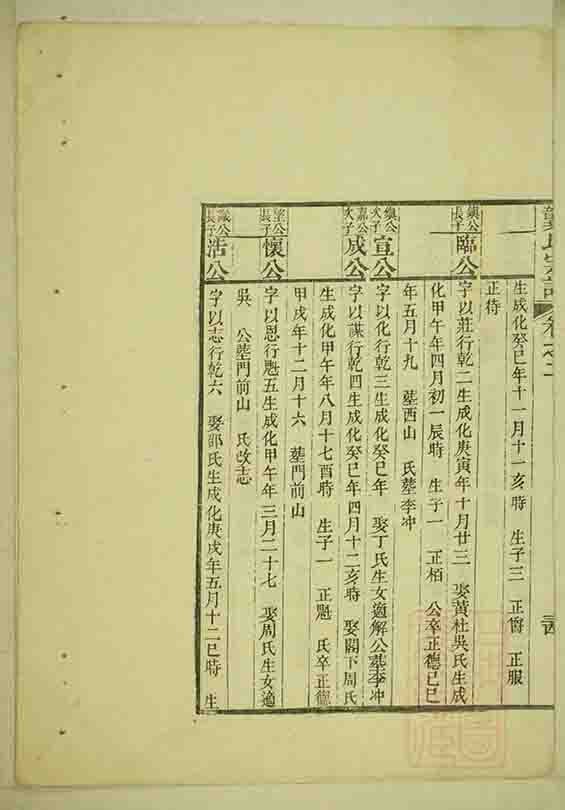 氏宗譜 卷之二
生成化癸巳年十一月十一亥時 生子三 正爵 正服
正待
鎮公長子 臨公 字以莊行乾二生成化庚寅年十月廿三 娶黃杜吳氏生成
化甲午年四月初一辰時 生子一 正栢 公卒正德己巳
年五月十九 塟西山 氏塟李冲
鎮公次子 宣公 字以化行乾三生成化癸巳年 娶丁氏生女適解公塟李冲
嘉公次子 成公 字以謀行乾四生成化癸巳年四月十二亥時 娶閣下周氏
生成化甲午年八月十七酉時 生子一 正魁 氏卒正德
甲戌年十二月十六 塟門前山
瑩公長子 懷公 字以恩行乾五生成化甲午年三月二十七 娶周氏生女適
吳 公塟門前山 氏改志
長子 浩公 字以志行乾六 娶邵氏生成化庚戌年五月十二巳時 生